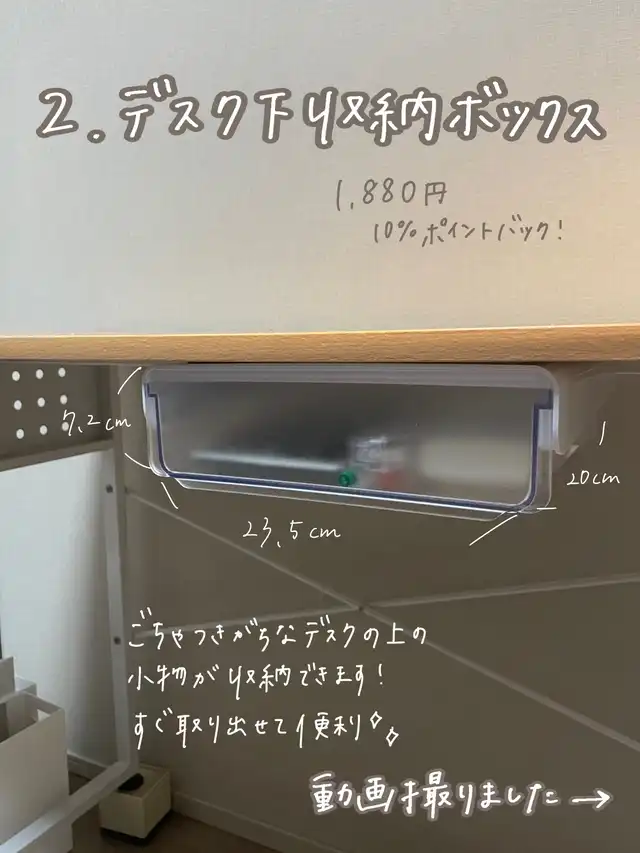 2.デスク下収納ボックス
1,880円
10%ポイントバック!
7.2cm
20cm
23.5cm
ごちゃつきがちなデスクの上の
小物が収納できます!
すぐ取り出せて便利
動画撮りました→